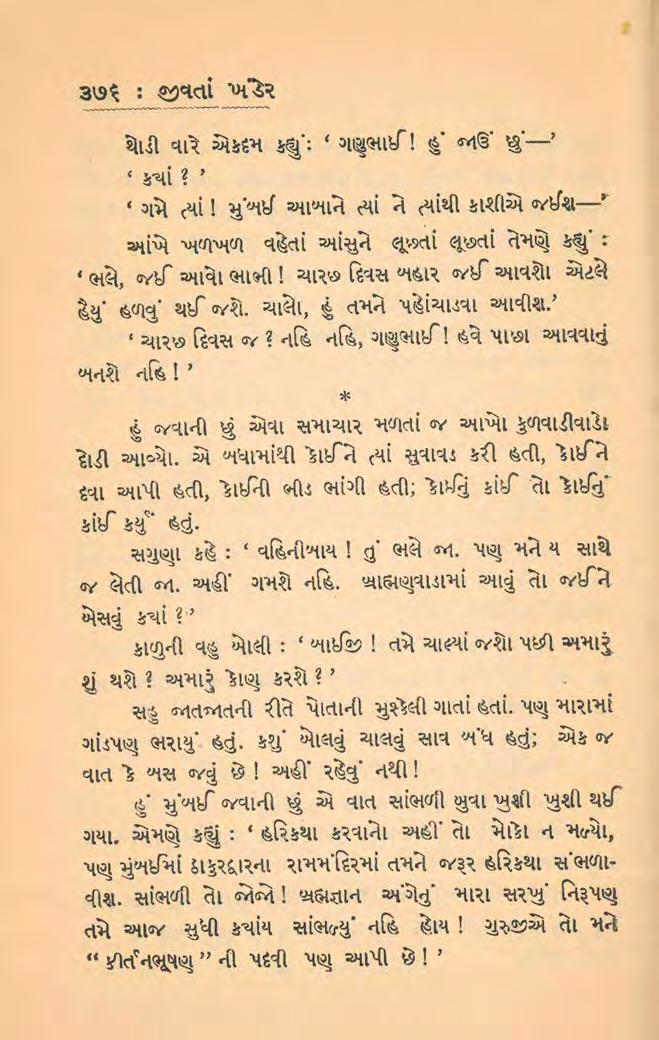 ૩૭૬ : જીવતાં ખંડેર
થોડી વારે એકદમ કહ્યું : ‘ ગણુભાઈ ! હું જાઉં છું—’
‘ ક્યાં ? ’
‘ ગમે ત્યાં ! મુંબઈ આબાને ત્યાં ને ત્યાંથી કાશીએ જઈશ—’
આંખે ખળખળ વહેતાં આંસુને લૂછતાં લૂછતાં તેમણે કહ્યું :
‘ ભલે, જઈ આવો ભાભી ! ચારછ દિવસ બહાર જઈ આવશો એટલે
હૈયું હળવું થઈ જશે. ચાલો, હું તમને પહોંચાડવા આવીશ.’
‘ ચારછ દિવસ જ ? નહિ નહિ, ગણુભાઈ ! હવે પાછા આવવાનું
બનશે નહિ ! ’
*
હું જવાની છું એવા સમાચાર મળતાં જ આખો કુળવાડીવાડો
દોડી આવ્યો. એ બધામાંથી કોઈને ત્યાં સુવાવડ કરી હતી, કોઈને
દવા આપી હતી, કોઈની ભીડ ભાંગી હતી; કોઈનું કાંઈ તો કોઈનું
કાંઈ કર્યું હતું.
સગુણા કહે : ‘ વહિનીબાય ! તું ભલે જા. પણ મને ય સાથે
જ લેતી જા. અહીં ગમશે નહિ. બ્રાહ્મણવાડામાં આવું તો જઈને
બેસવું ક્યાં ? ’
કાળુની વહુ બોલી : ‘ બાઈજી ! તમે ચાલ્યાં જશો પછી અમારું
શું થશે ? અમારું કોણ કરશે ? ’
સહુ જાતજાતની રીતે પોતાની મુશ્કેલી ગાતાં હતાં. પણ મારામાં
ગાંડપણ ભરાયું હતું. કશું બોલવું ચાલવું સાવ બંધ હતું; એક જ
વાત કે બસ જવું છે ! અહીં રહેવું નથી !
હું મુંબઈ જવાની છું એ વાત સાંભળી બુવા ખુશી ખુશી થઈ
ગયા. એમણે કહ્યું : ‘ હરિકથા કરવાનો અહીં તો મોકો ન મળ્યો,
પણ મુંબઈમાં ઠાકુરદ્વારના રામમંદિરમાં તમને જરૂર હરિકથા સંભળા-
વીશ. સાંભળી તો જોજો ! બ્રહ્મજ્ઞાન અંગેનું મારા સરખું નિરૂપણ
તમે આજ સુધી ક્યાંય સાંભળ્યું નહિ હોય ! ગુરુજીએ તો મને
“ કીર્તનભૂષણ ” ની પદવી પણ આપી છે ! ’